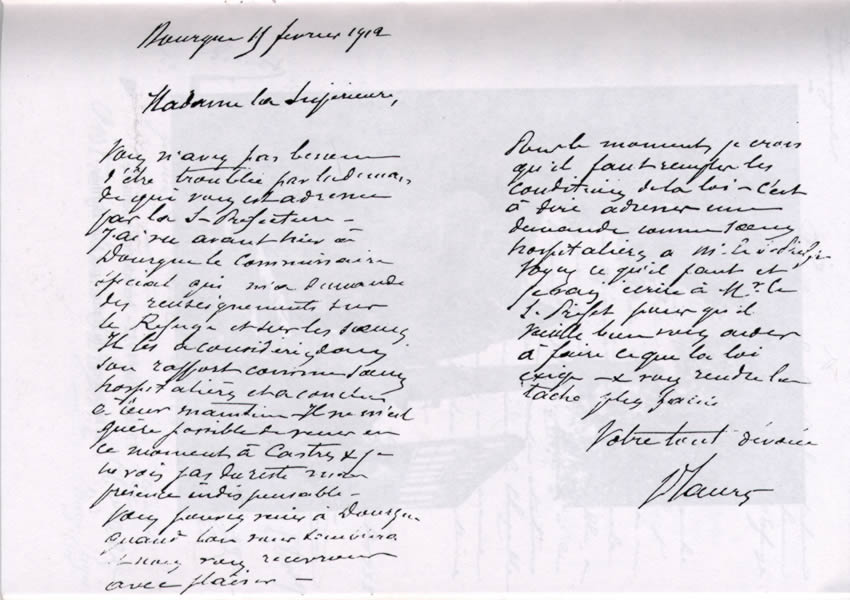 Dourgne 15 février 1912
Madame la Supérieure,
Vous n'avez pas besoin
d'être troublée par la demande
de qui vous est adressée
par la S-Préfecture -
J'ai vu avant hier à
Dourgne le Commissaire
spécial qui m'a demandé
des renseignements sur
le Refuge et sur les sœurs
Il les a considérées dans
son rapport comme sœurs
hospitalières et a conclu
à leur maintien Il ne m'est
guère possible de venir en
ce moment à Castres & je
ne vois pas du reste ma
présence indispensable -
Vous pouvez venir à Dourgne
quand bon vous semblera
& nous vous recevrons
avec plaisir -
Pour le moment je crois
qu'il faut remplir les
conditions de la loi - c'est
à dire adresser une
demande comme sœurs
hospitalières a M. le
Voyez ce qu'il faut et
je vais écrire à Mr le
S. Préfet pour qu'il
veuille bien vous aider
à faire ce que la loi
exige - & vous rendre la
tache plus facile
Votre tout dévoué